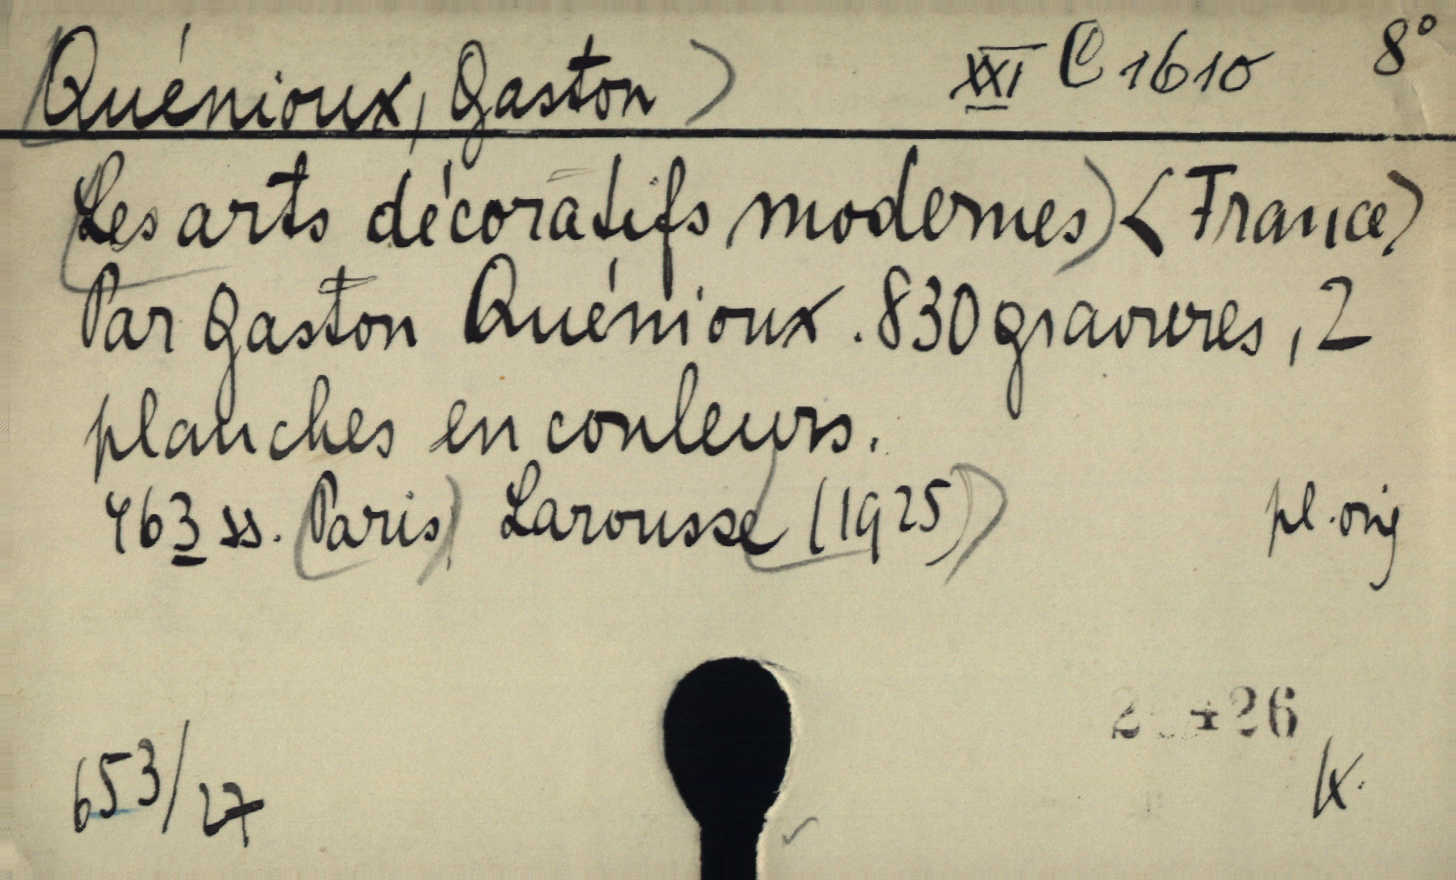 Quénioux, Gaston XXI C 1610 8°
Les arts décoratifs modernes <France>
Par Gaston Quénioux. 830 gravures, 2
planches en couleurs.
463 ss. Paris, Larousse (1925) pl. orig
426
653/27